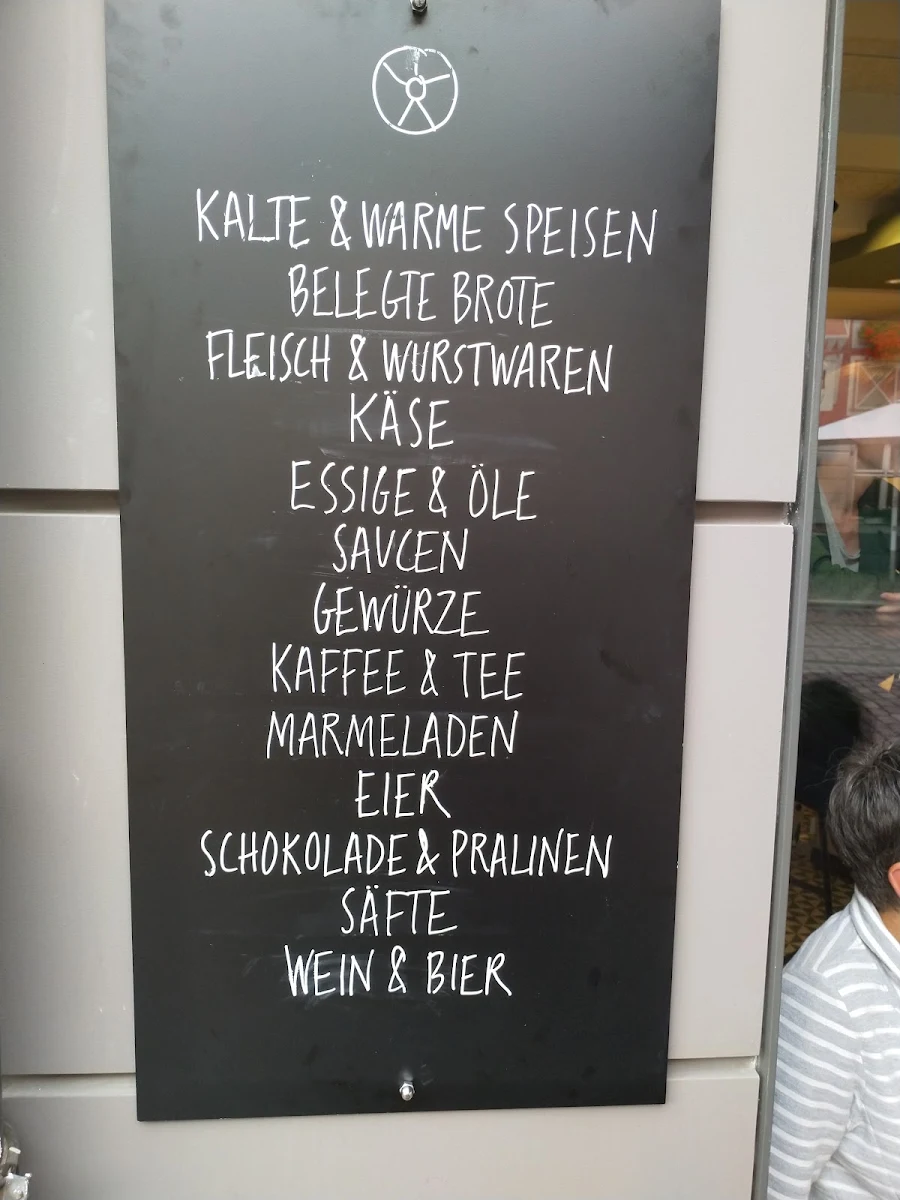 KALTE & WARME SPEISEN
BELEGTE BROTE
FLEISCH & WURSTWAREN
KÄSE
ESSIGE & ÖLE
SAUCEN
GEWÜRZE
KAFFEE & TEE
MARMELADEN
EIER
SCHOKOLADE & PRALINEN
SÄFTE
WEIN & BIER